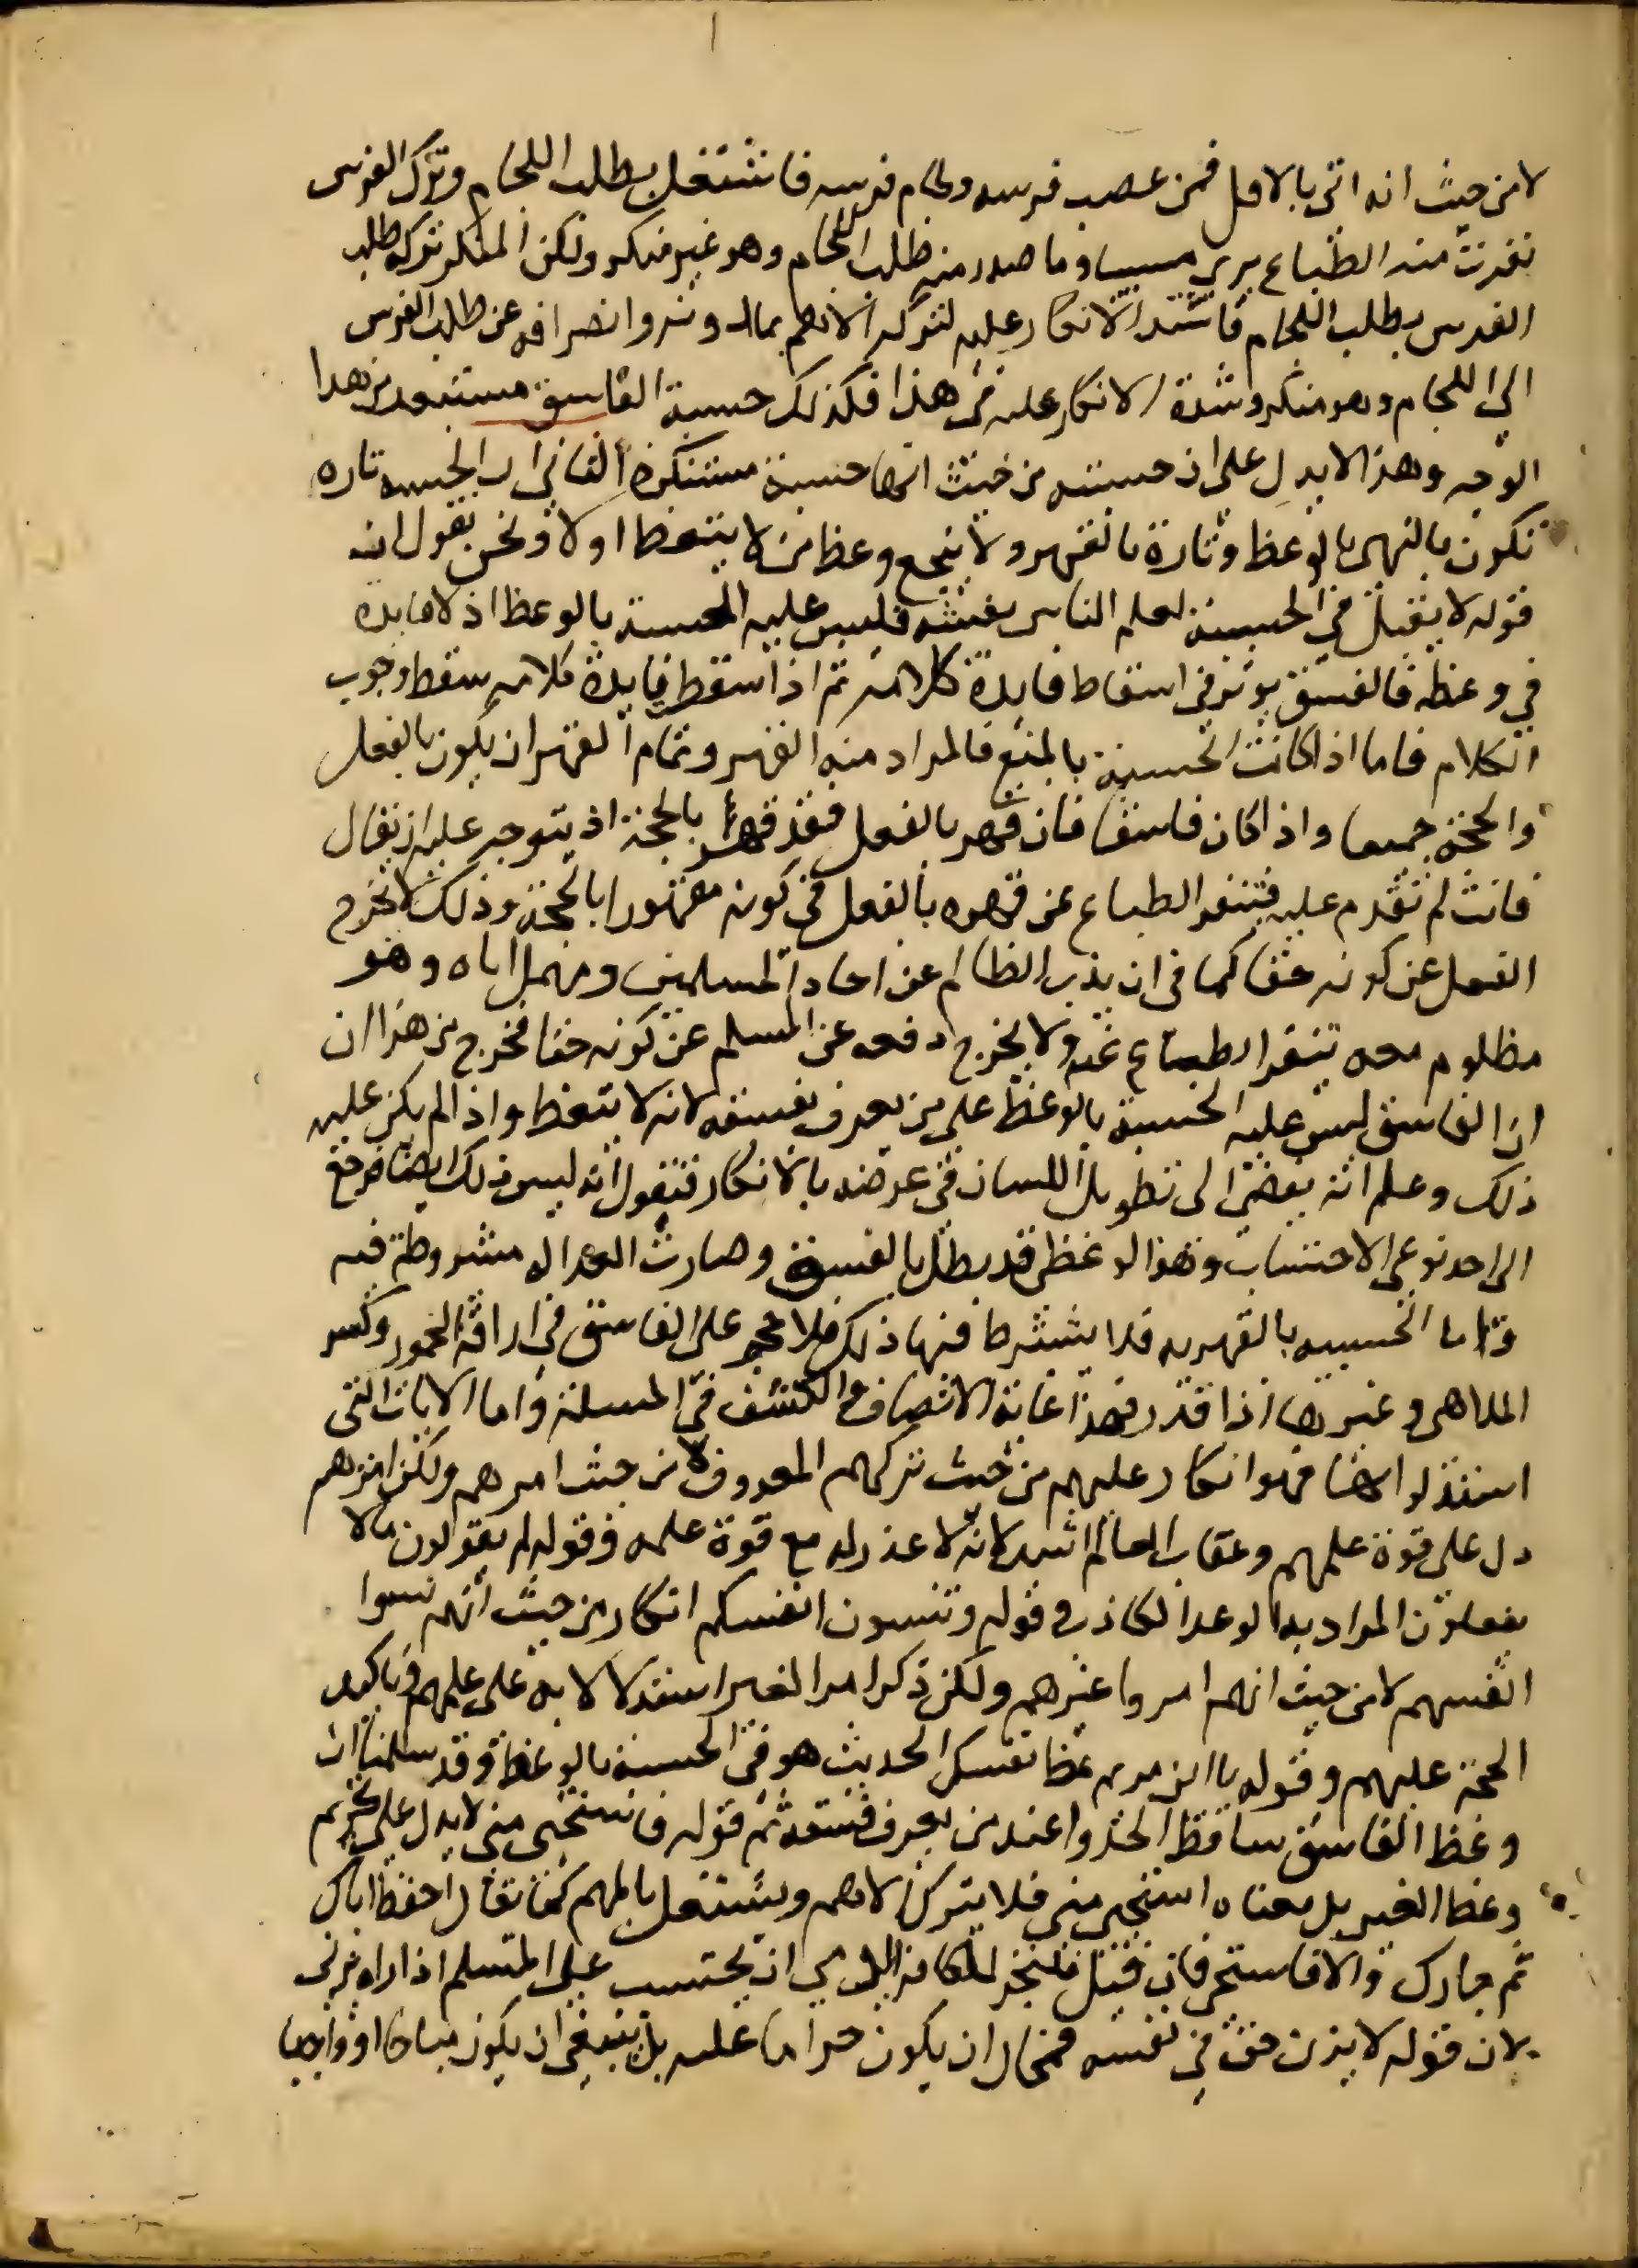 لا من حيث انه اتى بالاقل فمن غصب فرسه ولجام فرسه فاشتغل بطلب اللجام وترك الفرس
نفرت منه الطباع يرى مسيا وما صدر منه طلب اللجام وهو غير منكر ولكن المنكر تركه طلب
الفرس بطلب اللجام فاشتد الانكار عليه لتركه الاهم بمادونه وانصرافه عن طلب الفرس
الى اللجام وهو منكر وشدة الانكار عليه فى هذا فكذلك حسبة الفاسق مستبعد من هذا
الوجه وهذا لا يدل على ان حسبته من حيث انها حسبة مستنكرة الثانى ان الحسبه تاره
تكون بالنهى بالوعظ وتارة بالقهر ولا ينجع وعظ من لا يتعظ اولا ونحن نقول انه
قوله لا يقبل فى الحسبة لعلم الناس بفسقه فليس عليه الحسبة بالوعظ اذ لا فايدة
فى وعظه فالفسق يوثر فى اسقاط فايدة كلامه ثم اذا سقط فايدة كلامه سقط وجوب
الكلام فاما اذا كانت الحسبة بالمنع فالمراد منه القهر وتمام القهر ان يكون بالفعل
والحجة جميعا واذا كان فاسقا فان قهر بالفعل فقد قهر بالحجة اذ يتوجه عليه ان يقال
فانت لم تقدم عليه فتنفر الطباع عن قهره بالفعل فى كونه مقهورا بالحجة وذلك لا يخرج
الفعل عن كونه حقا كما فى ان يذب الظالم عن احاد المسلمين ومهمل اباه وهو
مظلوم معه تنفر الطباع عنه ولا يخرج دفعه عن المسلم عن كونه حقا فخرج من هذا ان
ان الفاسق ليس عليه الحسبة بالوعظ على من يعرف بفسقه لانه لا يتعظ واذا لم يكن عليه
ذلك وعلم انه يفضى الى تطويل اللسان فى عرضه بالانكار فنقول انه ليس ذلك ايضا فرجع
الى احد نوعى الاحتساب وهو الوعظ قد بطل بالفسق وصارت العداله مشروطة فيه
واما الحسبيه بالقهريه فلا يشترط فيها ذلك فلا حجر على الفاسق فى اراقة الخمور وكسر
الملاهى وغيرها اذا قدر فهذا غاية الانصاف والكشف فى المسلة واما الايات التى
استدلوا بها فهو انكار عليهم من حيث تركهم المعروف لا من حيث امرهم ولكن امرهم
دل على قوة علمهم وعقاب العالم اشد لانه لا عذر له مع قوة علمه وقوله لم يقولون مالا
يفعلون المراد به الوعد الكاذب وقوله وتنسون انفسكم انكار من حيث انهم نسوا
انفسهم لا من حيث انهم امروا غيرهم ولكن ذكر امر الغير استدلالا به على علمهم وتاكيد
الحجة عليهم وقوله يا ابن مريم عظ نفسك الحديث هو فى الحسبة بالوعظ وقد سلمنا ان
وعظ الفاسق ساقط الجدوا عند من يعرف فسقه ثم قوله فاستحيى منى لا يدل على تحريم
وعظ الغير بل معناه استحيى منى فلا يترك الاهم ويشتغل بالمهم كما يقال احفظ اباك
ثم جارك والا فاستحى فان قيل فليجز للكافر الذمى ان يحتسب على المسلم اذا راه يزنى
لان قوله لا تزن حق فى نفسه فمحال ان يكون حراما عليه بل ينبغى ان يكون مباحا او واجبا